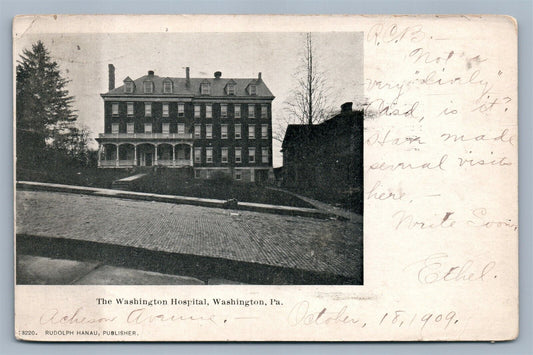 R.C.B. —
Not a
very "lively"
Card, is it?
Have made
several visits
here. —
Write Soon.
Ethel.
The Washington Hospital, Washington, Pa.
Acheson Avenue. — October, 18, 1909.
8220. RUDOLPH HANAU, PUBLISHER.